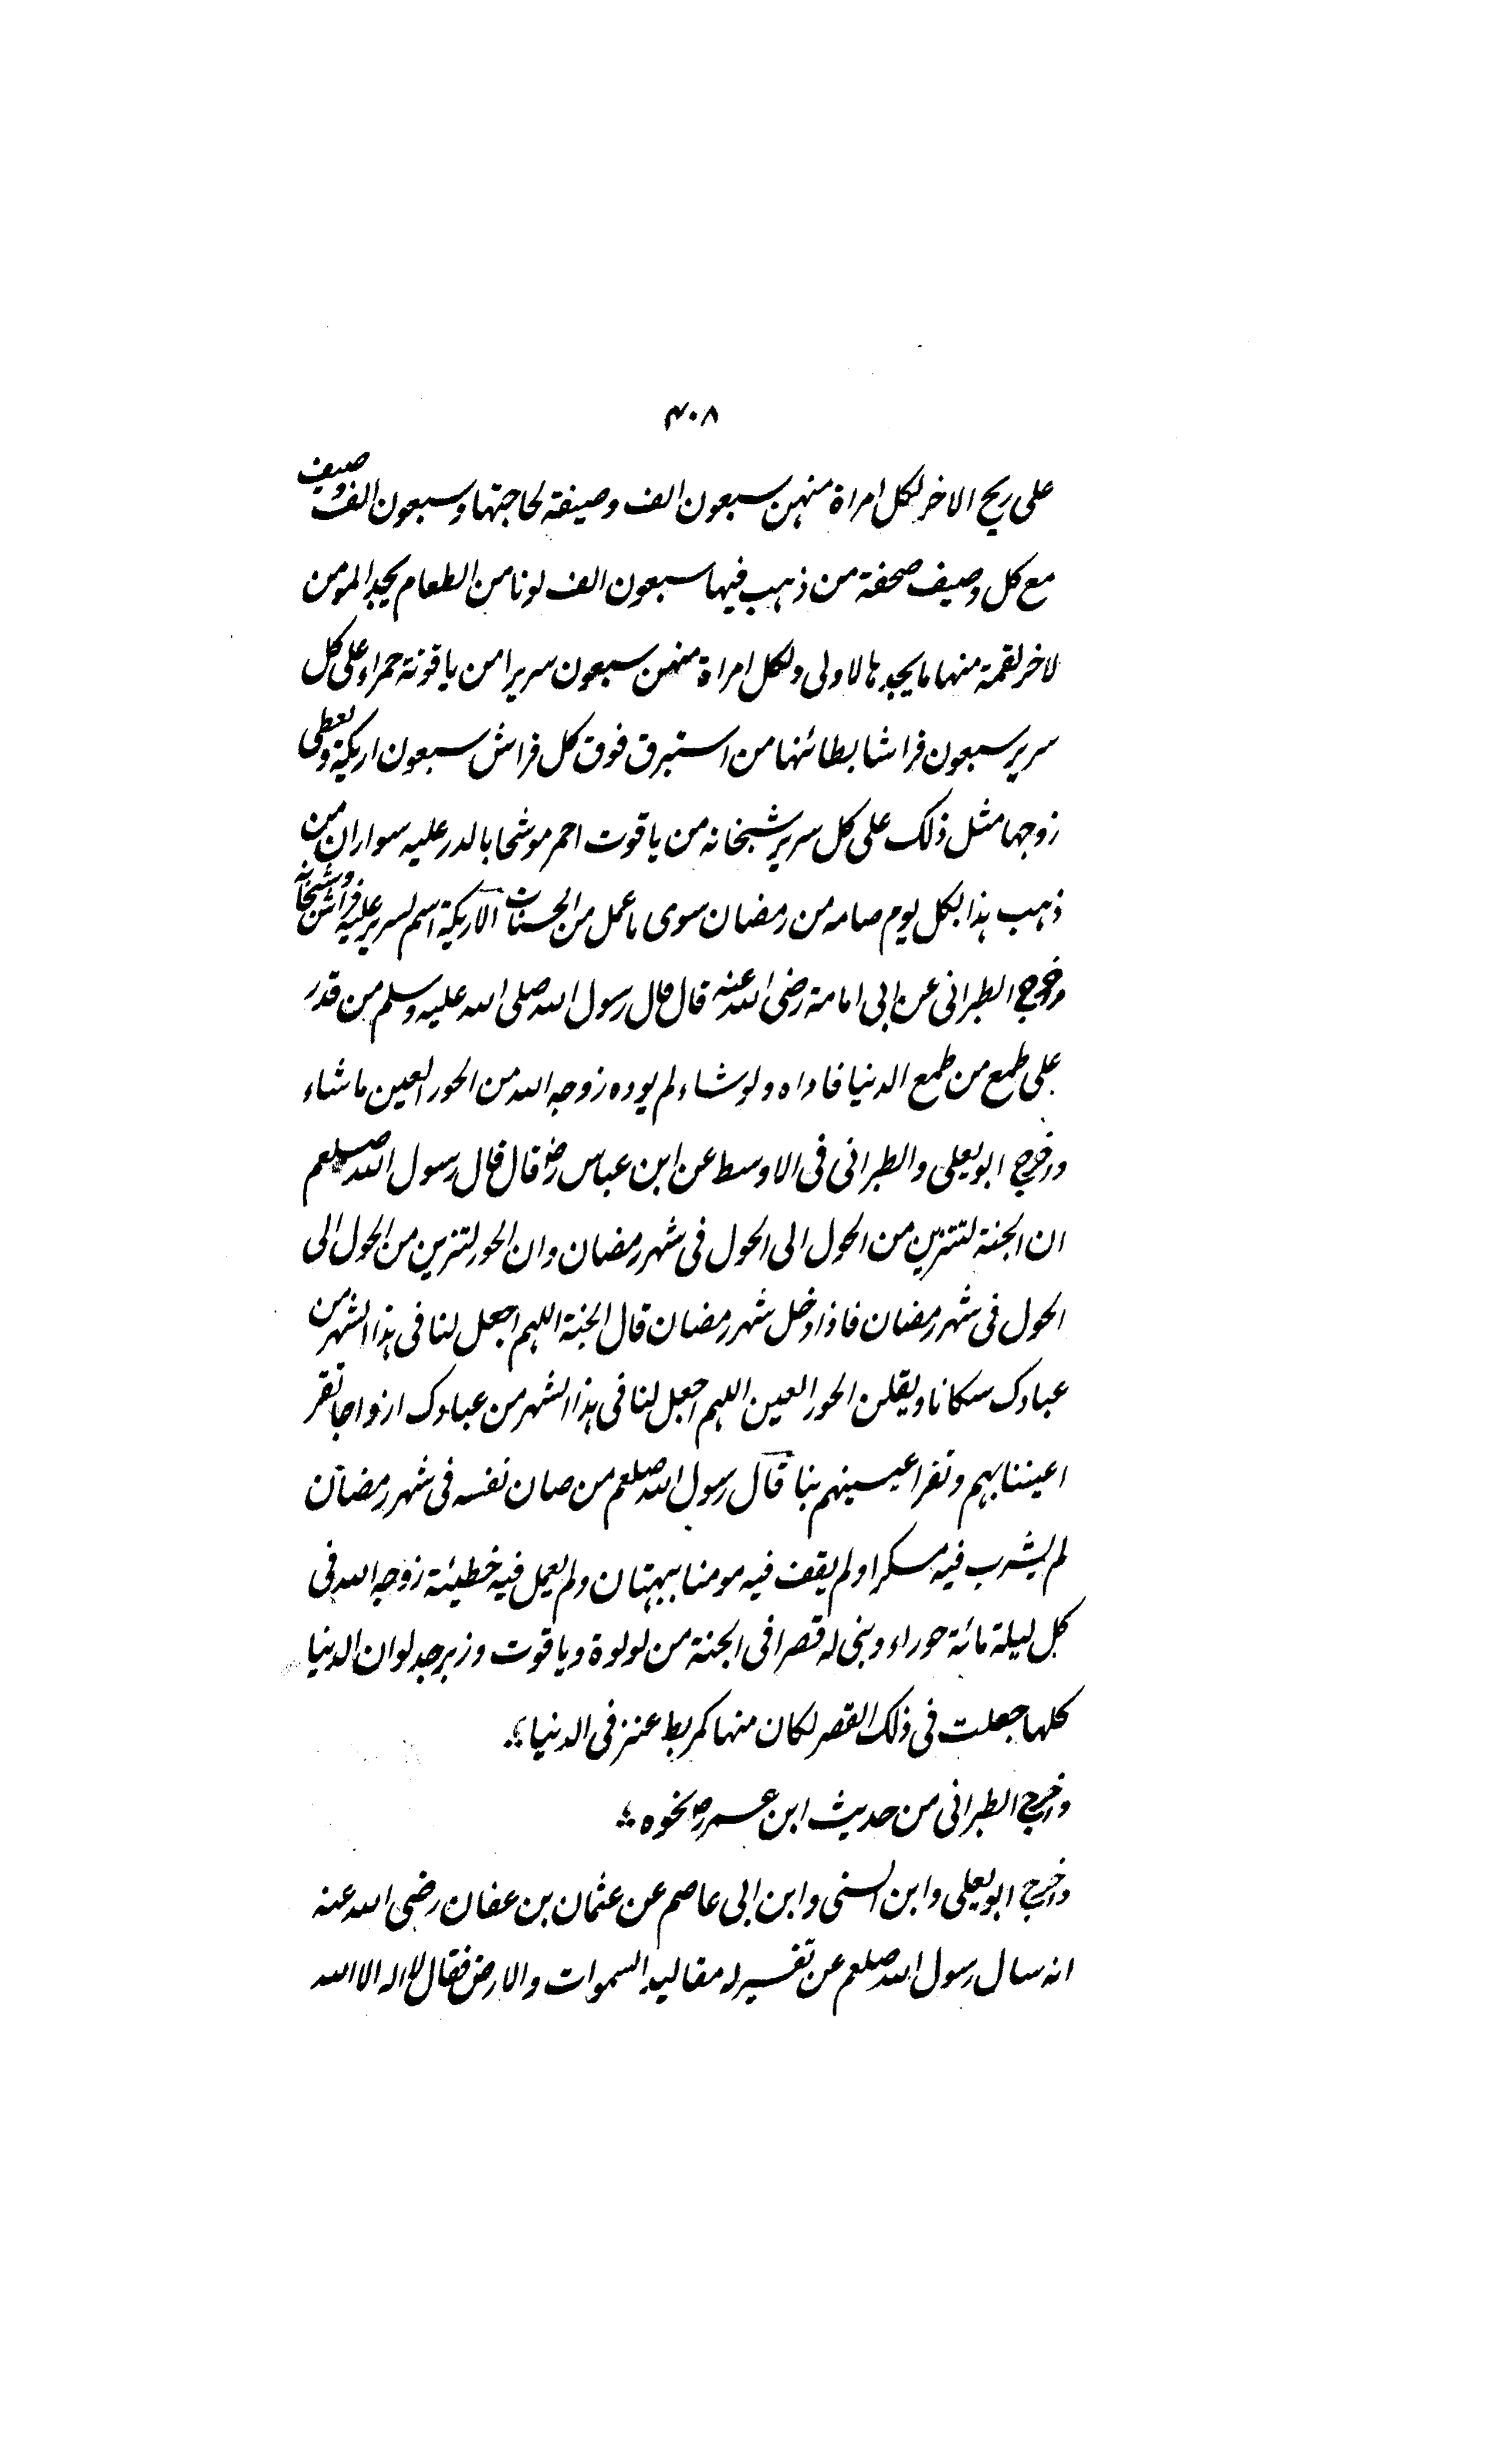 ۴۰۸
على ريح الاخر لكل امراة منهن سبعون الف وصيفة لحاجتها وسبعون الف وصيف
مع كل وصيف صحفة من ذهب فيها سبعون الف لونا من الطعام يجد المومن
لاخر لقمة منها ما يجدها لاولى ولكل امراة منهن سبعون سريرا من ياقوتة حمراء على كل
سرير سبعون فراشا بطائنها من استبرق فوق كل فراش سبعون اريكة ويعطى
زوجها مثل ذلك على كل سرير شبخانه من ياقوت احمر موشحا بالدر عليه سواران من
ذهب هذا لكل يوم صامه من رمضان سوى ما عمل من الحسنات الاريكة اسم لسرير عليه فراش وشبخانه
واخرج الطبرانى عن ابى امامة رضى الله عنه قال قال رسول الله صلى الله عليه وسلم من قدر
على طمع من طمع الدنيا فاداه ولو شاء لم يوده زوجه الله من الحور العين ما شاء
واخرج ابو يعلى والطبرانى فى الاوسط عن ابن عباس رض قال قال رسول الله صلعم
ان الجنة لتتزين من الحول الى الحول فى شهر رمضان وان الحور لتتزين من الحول الى
الحول فى شهر رمضان فاذا دخل شهر رمضان قال الجنة اللهم اجعل لنا فى هذا الشهر من
عبادك سكانا ويقلن الحور العين اللهم اجعل لنا فى هذا الشهر من عبادك ازواجا تقر
اعيننا بهم وتقر اعينهم بنا قال رسول الله صلعم من صان نفسه فى شهر رمضان
لم يشرب فيه مسكرا ولم يقف فيه مومنا ببهتان ولم يعمل فيه خطيئة زوجه الله فى
كل ليلة مائة حوراء وبنى له قصرا فى الجنة من لولوة وياقوت وزبرجد لو ان الدنيا
كلها جعلت فى ذلك القصر لكان منها كمربط عنز فى الدنيا
واخرج الطبرانى من حديث ابن عمر رض نحوه
واخرج ابو يعلى وابن السنى وابن ابى عاصم عن عثمان بن عفان رضى الله عنه
انه سال رسول الله صلعم عن تفسير له مقاليد السموات والارض فقال لا اله الا الله